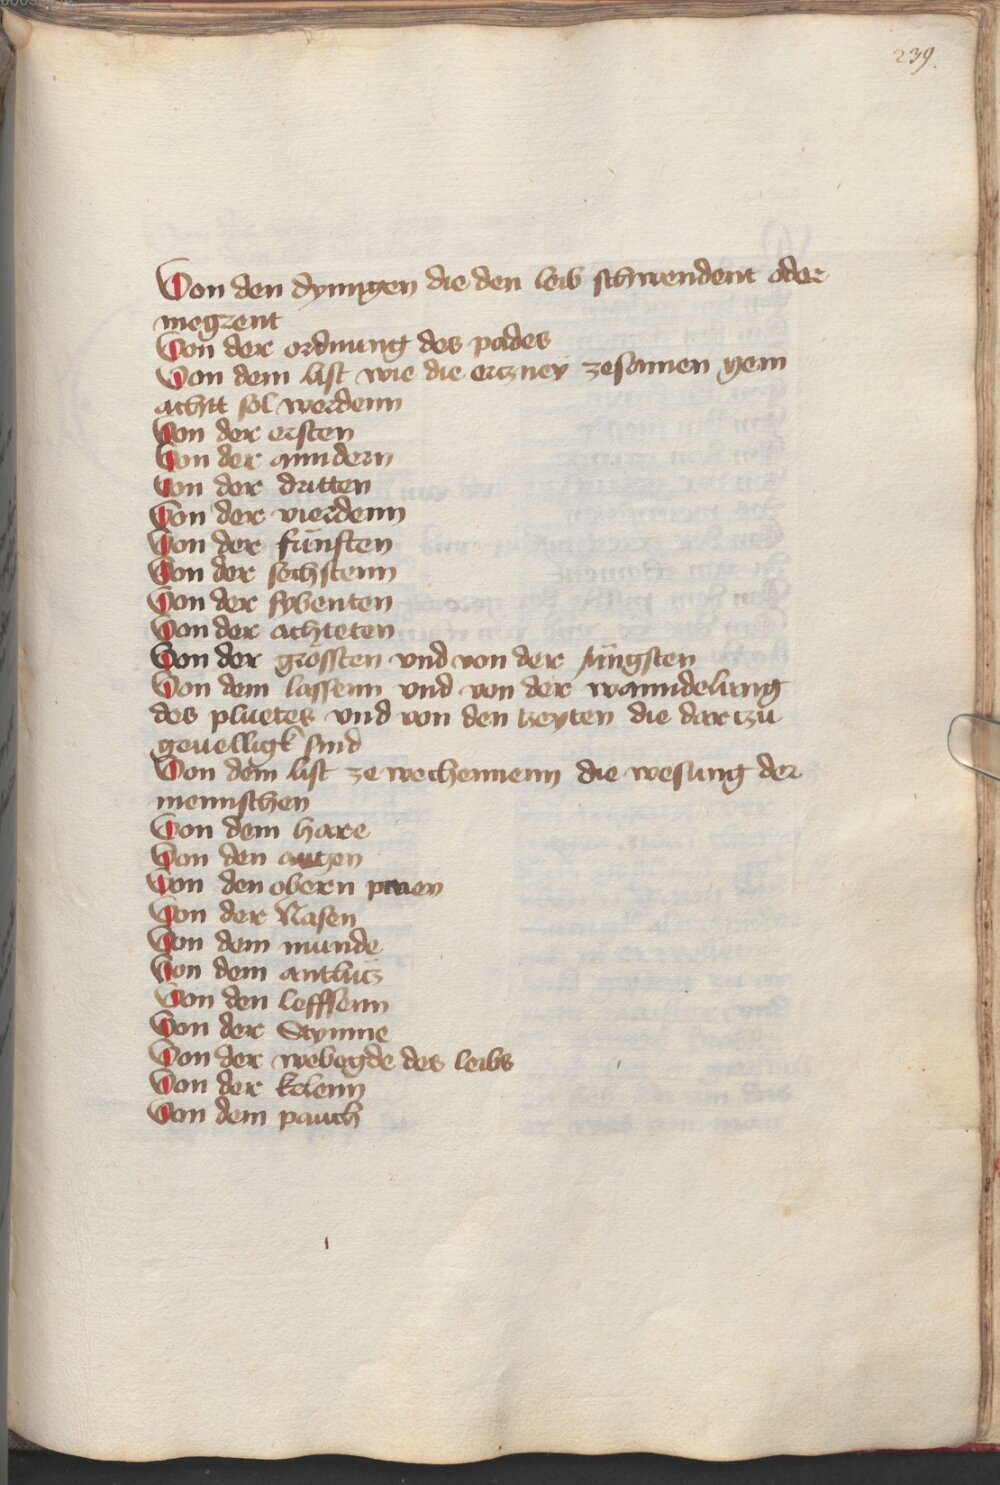 239.
Von den dyngen die den leib schwendent oder
megrent
Von der ordnung des pades
Von dem list wie die erczney zesamen gem
achtt sol werdenn
Von der ersten
Von der anndern
Von der dritten
Von der vierdenn
Von der fünften
Von der sechstenn
Von der sybenten
Von der achteten
Von der grossten vnd von der jüngsten
Von dem lassenn vnd von der wanndelung
des pluetes vnd von den tzeyten die dar tzu
geuelligk sind
Von dem list ze wechennenn die wesung der
mennschen
Von dem hare
Von den augen
Von den obern praen
Von der Nasen
Von dem munde
Von dem antlütz
Von den lefssenn
Von der Stymme
Von der webegde des leibs
Von der kelenn
Von dem pauch